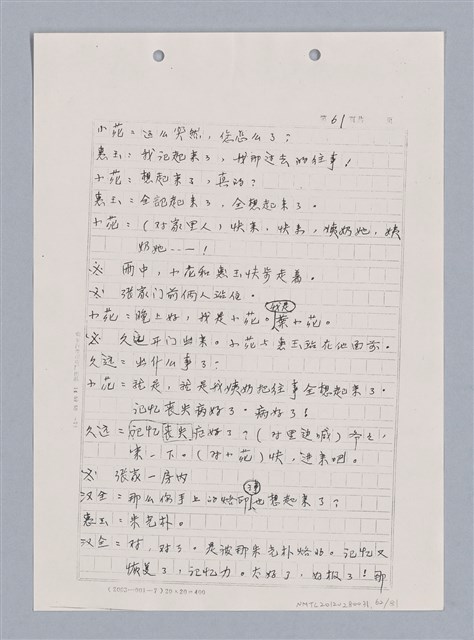 第 61 頁共 頁
小花：这么突然，您怎么了？
惠玉：我记起来了，我那过去的往事！
小花：想起来了，真的？
惠玉：全记起来了，全想起来了。
小花：（对家里人）快来，快来，姨奶她，姨
奶她……！
※ 雨中，小花和惠玉快步走着。
※ 张家门前俩人站住。
小花：晚上好，我是小花。我是叶小花。
※ 久远开门出来。小花与惠玉站在他面前。
久远：出什么事了？
小花：就是，就是我姨奶把往事全想起来了。
记忆丧失病好了。病好了！
久远：记忆丧失症好了？（对里边喊）
来一下。（对小花）快，进来吧。
※ 张家一房内
汉全：那么你手上的烙印也想起来了？
惠玉：朱先朴。
汉全：对，对了。是被那朱先朴烙的。记忆又
恢复了，记忆力。太好了，好极了！那
(2002-003-7) 20×20=400
NMTL20120280031 62/91